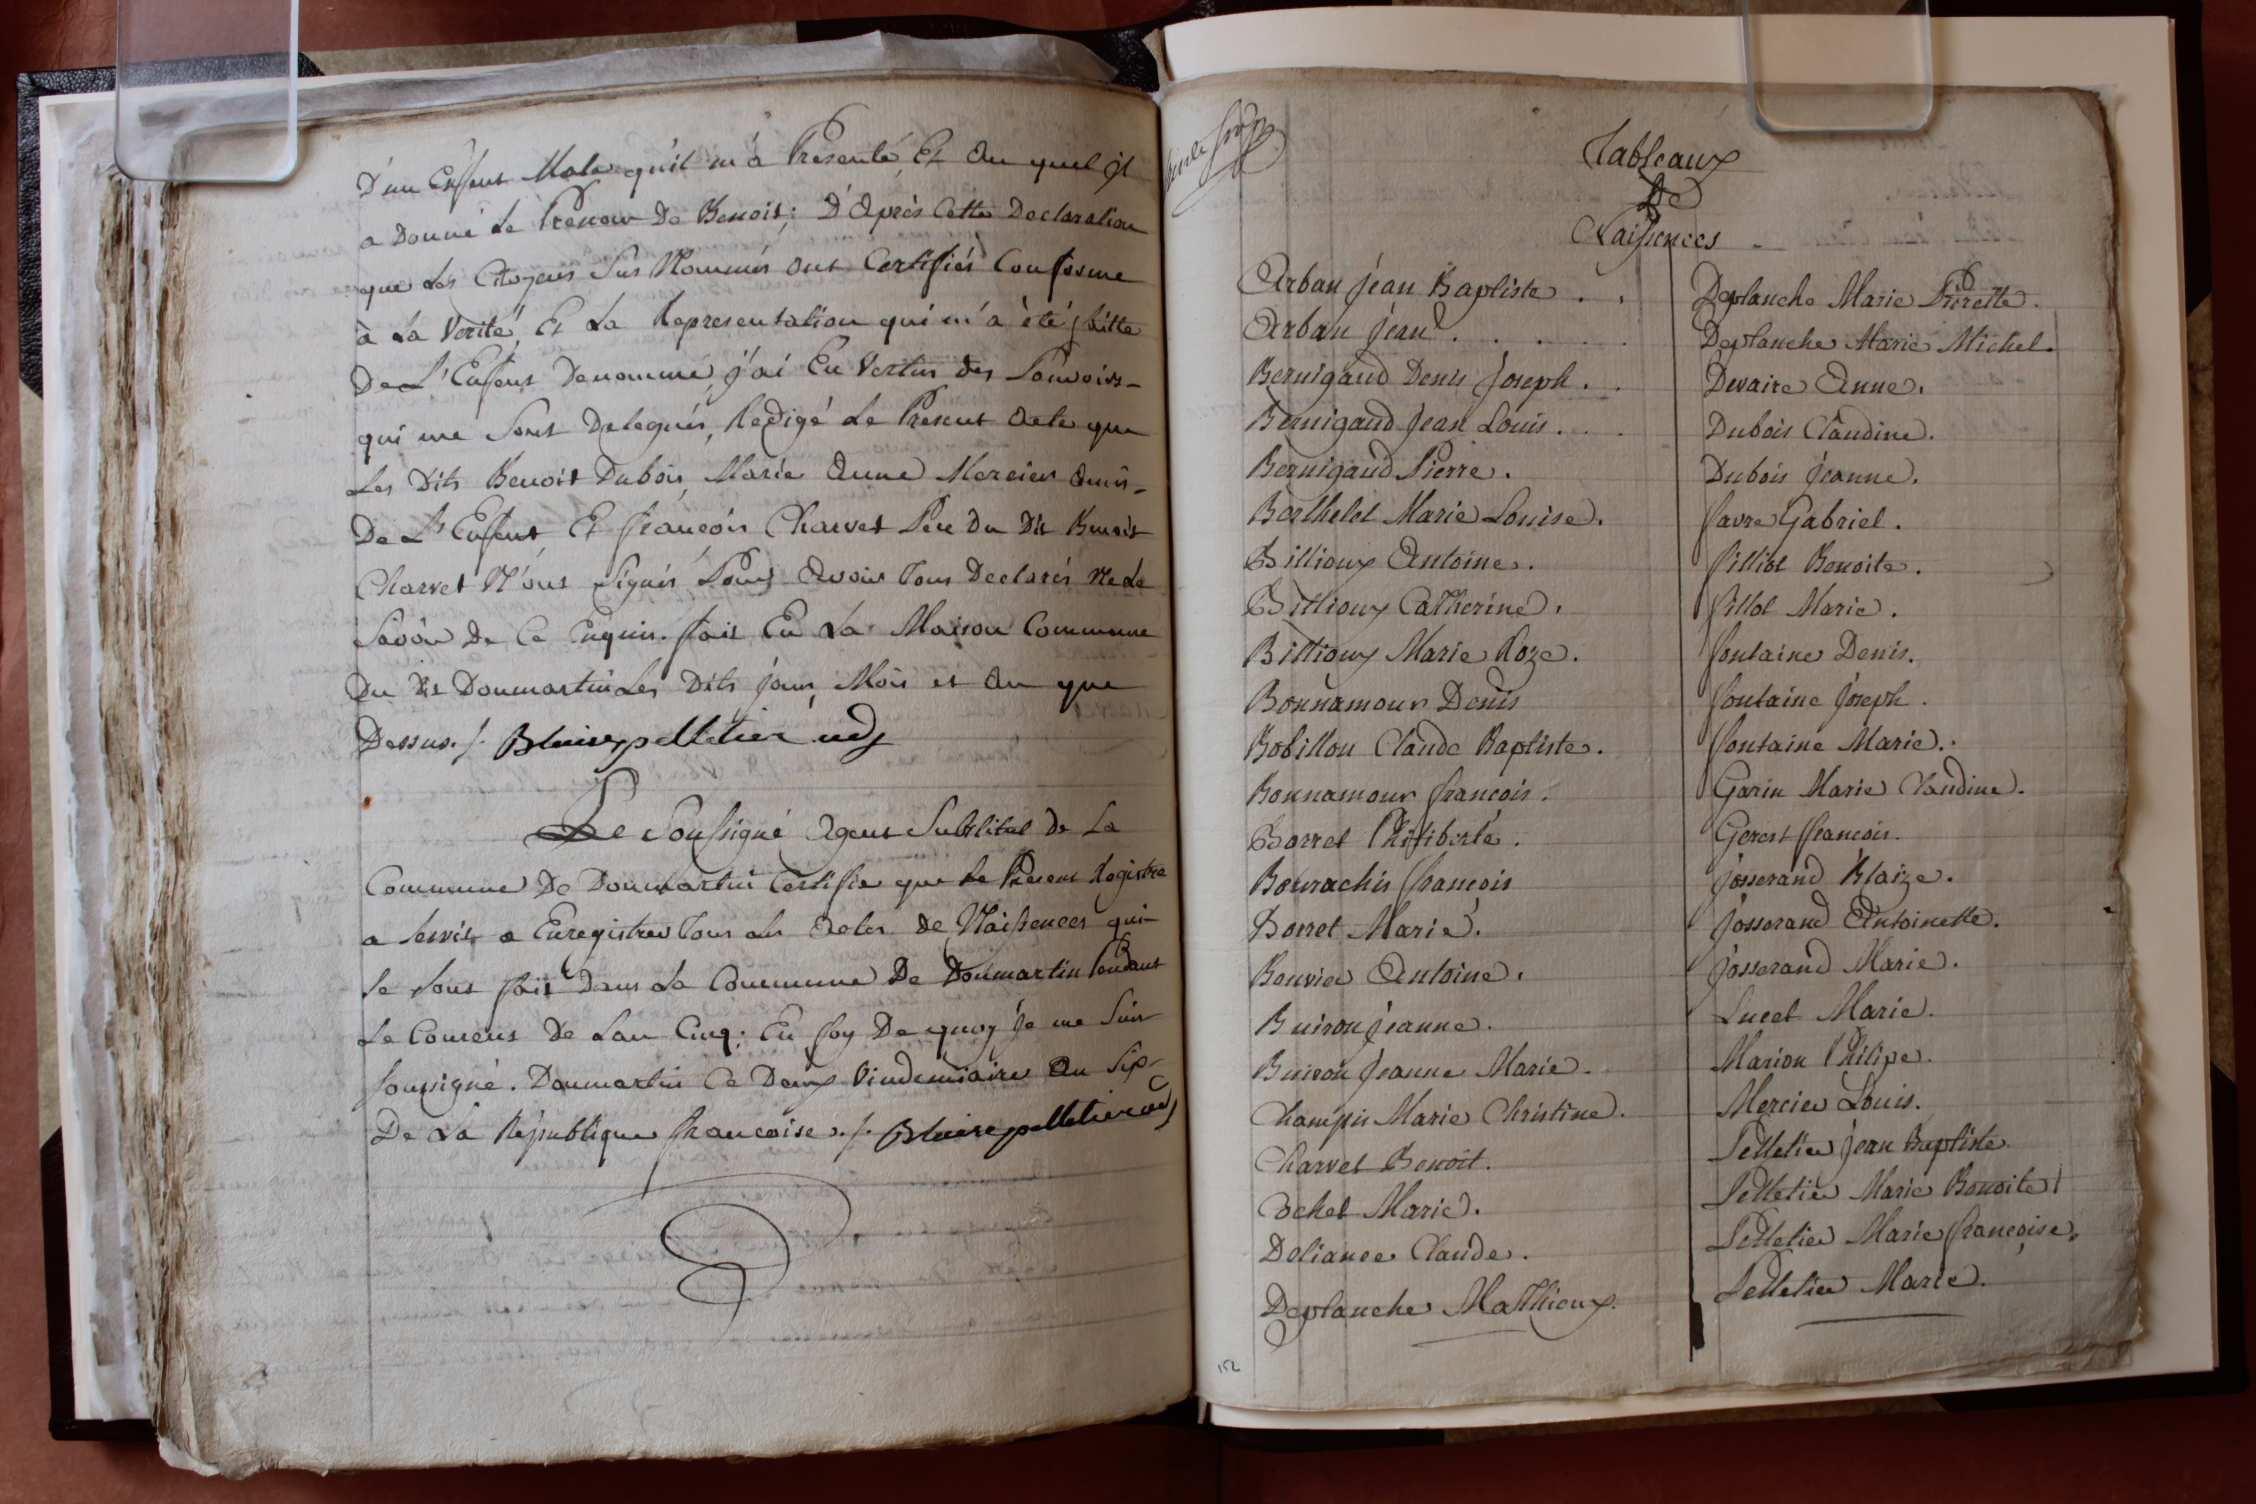 D'un Enfent Male qu'il m'a Presenté Et Au quel Il
a Donné Le Prenom De Benoit; D'Après Cette Declaration
que Les Citoyens Sus Nommés ont Certifiés Conforme
à La Verité, Et La Representation qui m'a èté faitte
De L'Enfent Denommé, j'ai En Vertus des Pouvoirs
qui me Sont Delegués, Redigé Le Present Acte que
Les Dits Benoit Dubois, Marie Anne Mercier Amis
De L'Enfent, Et françois Charvet Pere Du Dit Benoit
Charvet N'ont Signés Pour Avoir Tous Declarés Ne Le
Savoir De Ce Enquis. fait En La Maison Commune
Du Dit Donmartin Les Dits jour Mois et An que
Dessus ./. Blaise pelletier adj
Le Soussigné Agent Substitut De La
Commune De Donmartin Certifie que Le Present Registre
a Servit a Enregistrer Tous Les Actes De Naissences qui
Se Sont fait Dans La Commune De Donmartin Pendant
Le Courens De Lan Cinq; En foy De quoy Je me Suis
Soussigné. Donmartin Ce Deux Vindemiaire An Six
De La République françoise ./. Blaise pelletier adj
Tableaux
De
Naissences
Arban jean Baptiste . .
Arban jean . . . . .
Bernigaud Denis Joseph . .
Bernigaud Jean Louis . . .
Bernigaud Pierre .
Berthelet Marie Louise .
Billioux Antoine .
Billioux Catherine .
Billioux Marie Roze .
Bonnamour Denis
Bobillon Claude Baptiste .
Bonnamour françois .
Borret Philiberte .
Bourachis françois
Borret Marie .
Bouvier Antoine .
Buiron jeanne .
Buiron Jeanne Marie .
Champin Marie Christine .
Charvet Benoit .
Cochet Marie .
Deliance Claude .
Deplanche Matthieux .
Deplanche Marie Pierette .
Deplanche Marie Michel .
Devaire Anne .
Dubois Claudine .
Dubois jeanne .
favre Gabriel .
filliot Benoite .
fillot Marie .
fontaine Denis .
fontaine Joseph .
fontaine Marie .
Garin Marie Claudine .
Gerest françois .
josserand Blaize .
josserand Antoinette .
josserand Marie .
Lucet Marie .
Marion Philipe .
Mercier Louis .
Pelletier jean Baptiste
Pelletier Marie Benoite
Pelletier Marie françoise .
Pelletier Marie .
152